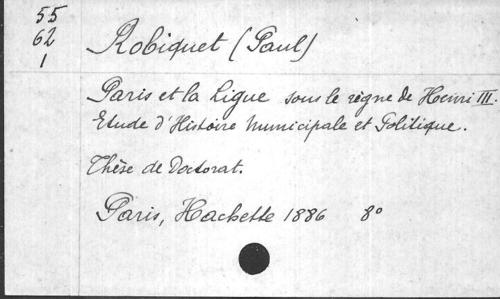 55
62
1
Robiquet (Paul)
Paris et la Ligue sous le règne de Henri III.
Etude d'Histoire Municipale et Politique.
Thèse de Doctorat.
Paris, Hachette 1886 8°